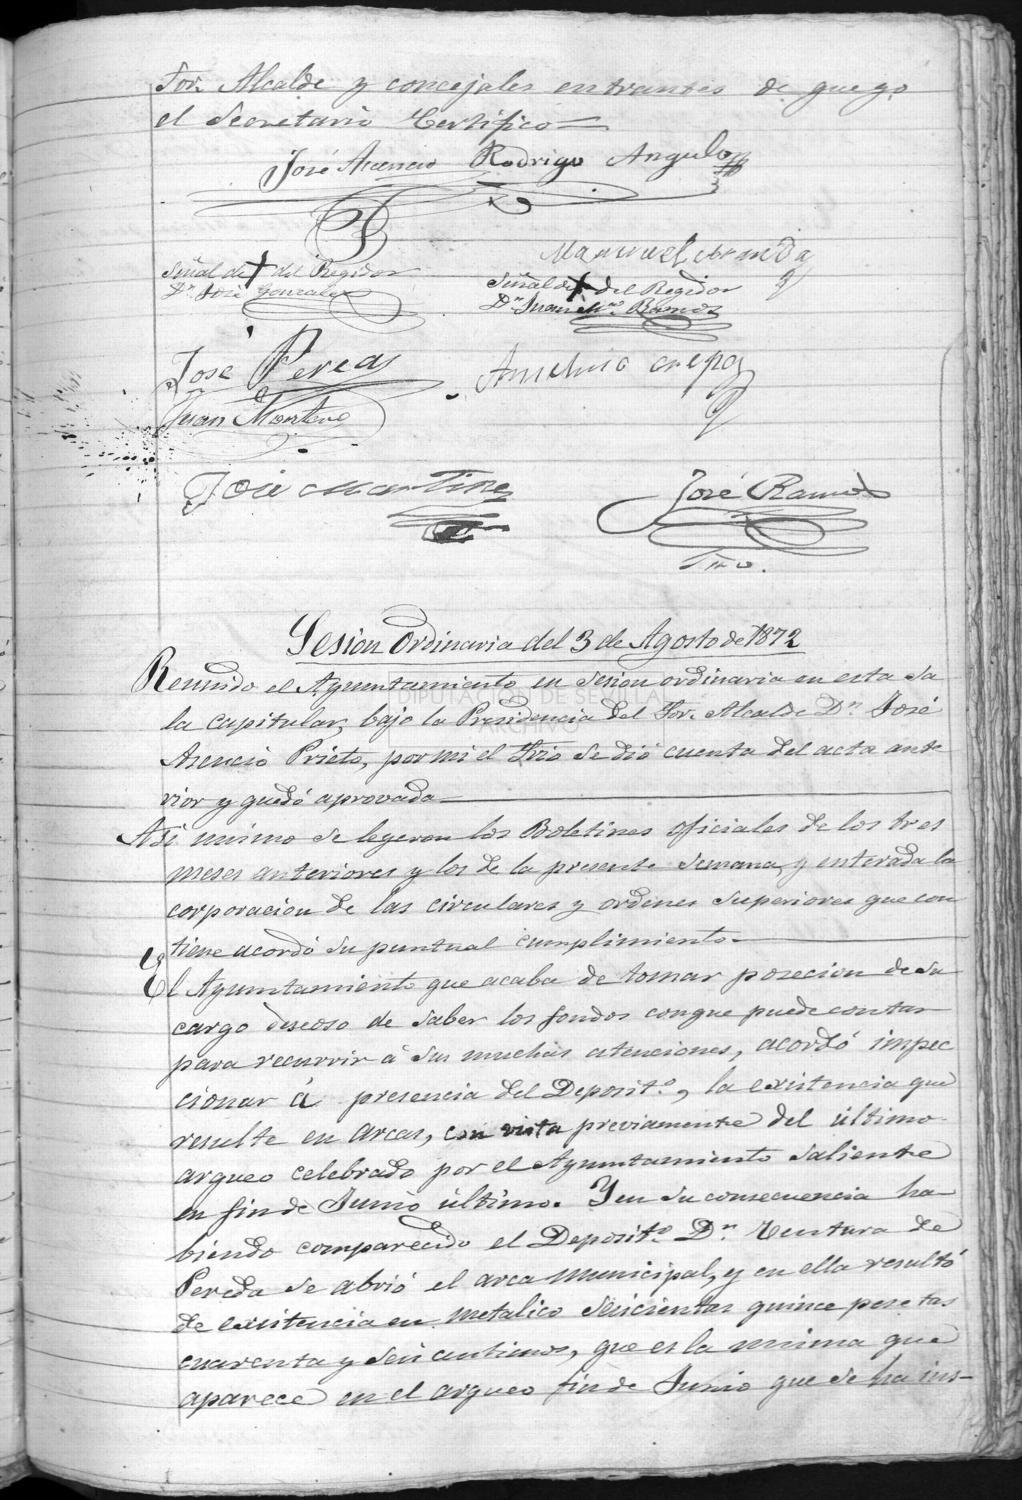 Sor. Alcalde y concejales entrantes de que yo
el Secretario Certifico=
José Asencio Rodrigo Angulo
Manuel Aranda
Señal de + del Regidor
Dn José Gonzalez
Señal de + del Regidor
Dn Juan Ramos
José Pereas
Anselmo crespo
Juan Montero
José Martinez
José Ramos
Srio.
Sesion Ordinaria del 3 de Agosto de 1872
Reunido el Ayuntamiento en Sesion ordinaria en esta Sa
la capitular, bajo la Presidencia del Sor. Alcalde Dn José
Asencio Prieto, por mi el Srio se dió cuenta del acta ante
rior y quedó aprovada
Asi mismo se legeron los Boletines oficiales de los tres
meses anteriores y los de la presente semana, y enterada la
corporacion de las circulares y ordenes superiores que con
tiene acordó su puntual cumplimiento.
El Ayuntamiento que acaba de tomar posecion de su
cargo deseoso de saber los fondos conque puede contar
para recurrir á sus muchas atenciones, acordó impec
cionar á presencia del Deposito, la existencia que
resulte en arcas, con vista previamente del último
arqueo celebrado por el Ayuntamiento Saliente
en fin de Junio último. Y en su consecuencia ha-
biendo comparecido el Deposito. Dn Ventura de
Pereda se abrió el arca municipal, y en ella resultó
de existencia en metalico Seiscientas quince pesetas
cuarenta y seis centimos, que es la misma que
aparece en el arqueo fin de Junio que se ha ins-
DIPUTACIÓN DE SEVILLA
ARCHIVO